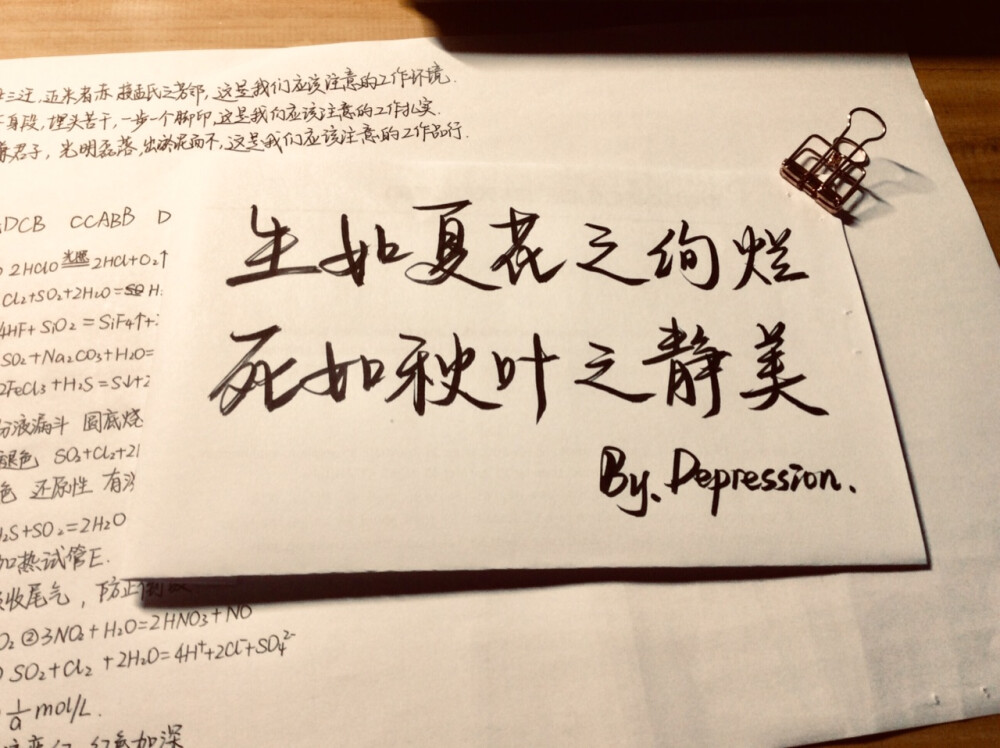 三迁,近朱者赤,接孟氏之芳邻,这是我们应该注意的工作环境.
身段,埋头苦干,一步一个脚印,这是我们应该注意的工作扎实.
君子,光明磊落,出淤泥而不,这是我们应该注意的工作品行.
DCB CCABB D
2HClO 光照 2HCl+O₂↑
Cl₂+SO₂+2H₂O=
4HF+SiO₂=SiF₄↑+
SO₂+Na₂CO₃+H₂O=
2FeCl₃+H₂S=S↓+2
分液漏斗 圆底烧
褪色 SO₂+Cl₂+2
色 还原性 有
H₂S+SO₂=2H₂O
加热试管E.
收尾气,防止倒
O₂ ②3NO₂+H₂O=2HNO₃+NO
SO₂+Cl₂+2H₂O=4H⁺+2Cl⁻+SO₄²⁻
1/a mol/L.
加深
生如夏花之绚烂
死如秋叶之静美
By. Depression.